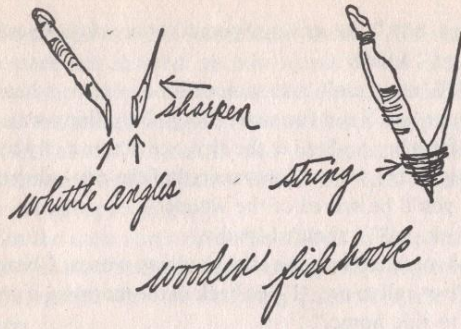 sharpen
whittle angles
string
wooden fishhook